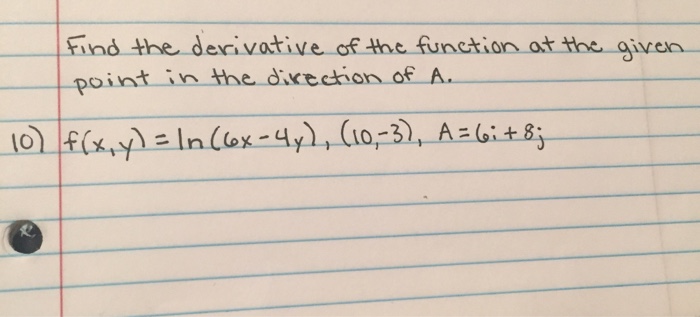 Find the derivative of the function at the given
point in the direction of A.
10) f(x,y) = ln(6x-4y), (10,-3), A = 6i + 8j